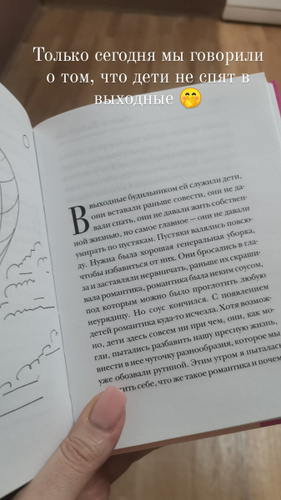 Только сегодня мы говорили
о том, что дети не спят в
выходные 🤭
В выходные будильником ей служили дети,
они вставали раньше совести, они не да-
вали спать, они не давали жить собствен-
ной жизнью, но самое главное – они не давали
умирать по пустякам. Пустяки валялись повсю-
ду. Нужна была хорошая генеральная уборка,
чтобы избавиться от них. Они бросались в гла-
за и заставляли нервничать, раньше их скраши-
вала романтика, романтика была неким соусом,
под которым можно было проглотить любую
неурядицу. Но соус кончился. С появлением
детей романтика куда-то исчезла. Хотя возмож-
но, дети здесь совсем ни при чем, они, как мо-
гли, пытались разбавить нашу пресную жизнь,
внести в нее чуточку разнообразия, которое мы
уже обозвали рутиной. Этим утром я пыталась
себе, что же такое романтика и почему